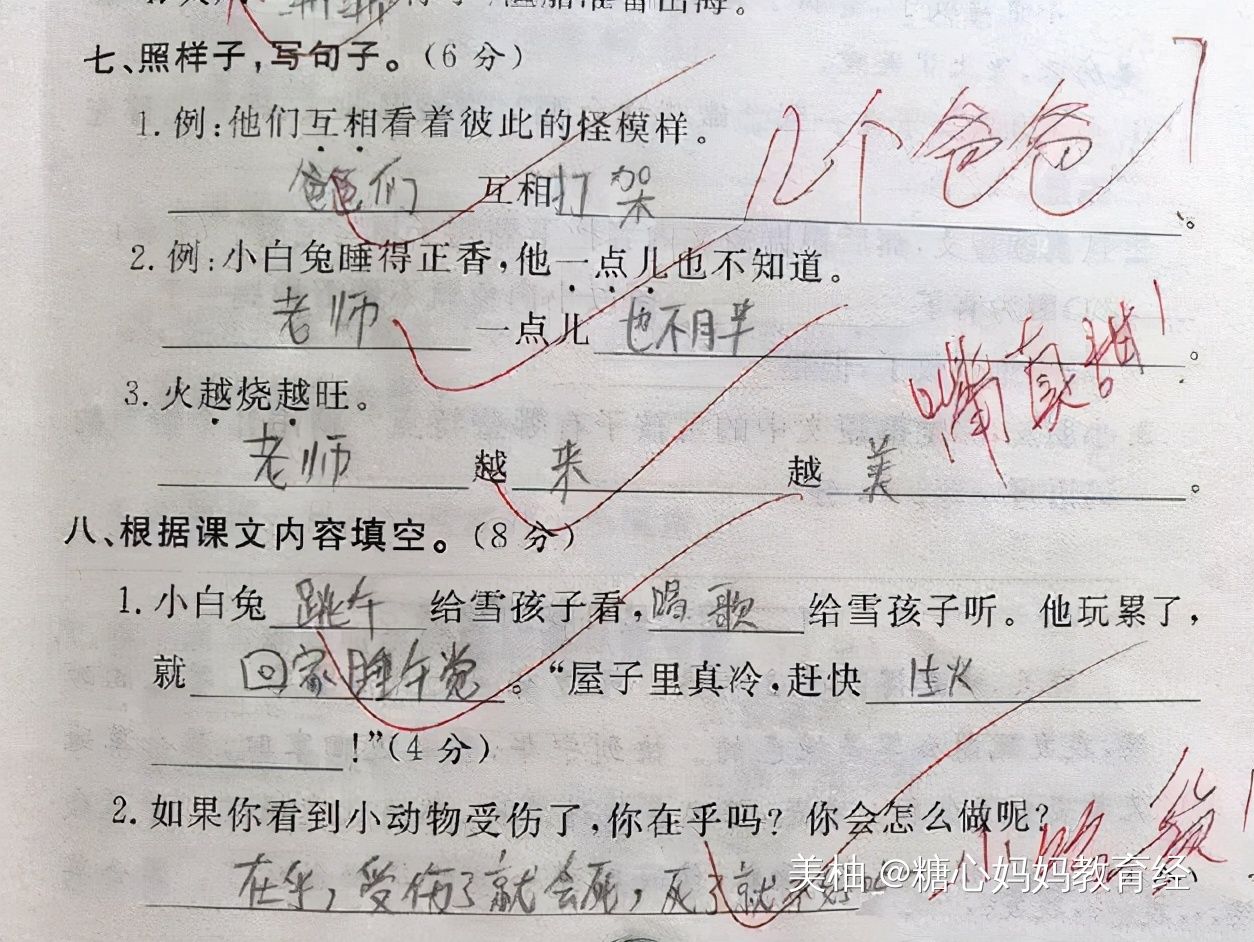 准备出海。
七、照样子,写句子。(6分)
1. 例:他们互相看着彼此的怪模样。
几个爸爸
爸爸们 互相打架。
2. 例:小白兔睡得正香,他一点儿也不知道。
老师 一点儿 也不胖。
嘴真甜!
3. 火越烧越旺。
老师 越 来 越 美。
八、根据课文内容填空。(8分)
1. 小白兔 跳午 给雪孩子看,唱歌 给雪孩子听。他玩累了,
就 回家睡午觉。“屋子里真冷,赶快
!”(4分)
2. 如果你看到小动物受伤了,你在乎吗?你会怎么做呢?
在乎,受伤了就会死,死了就不好吃
小吃货!
美柚 @糖心妈妈教育经